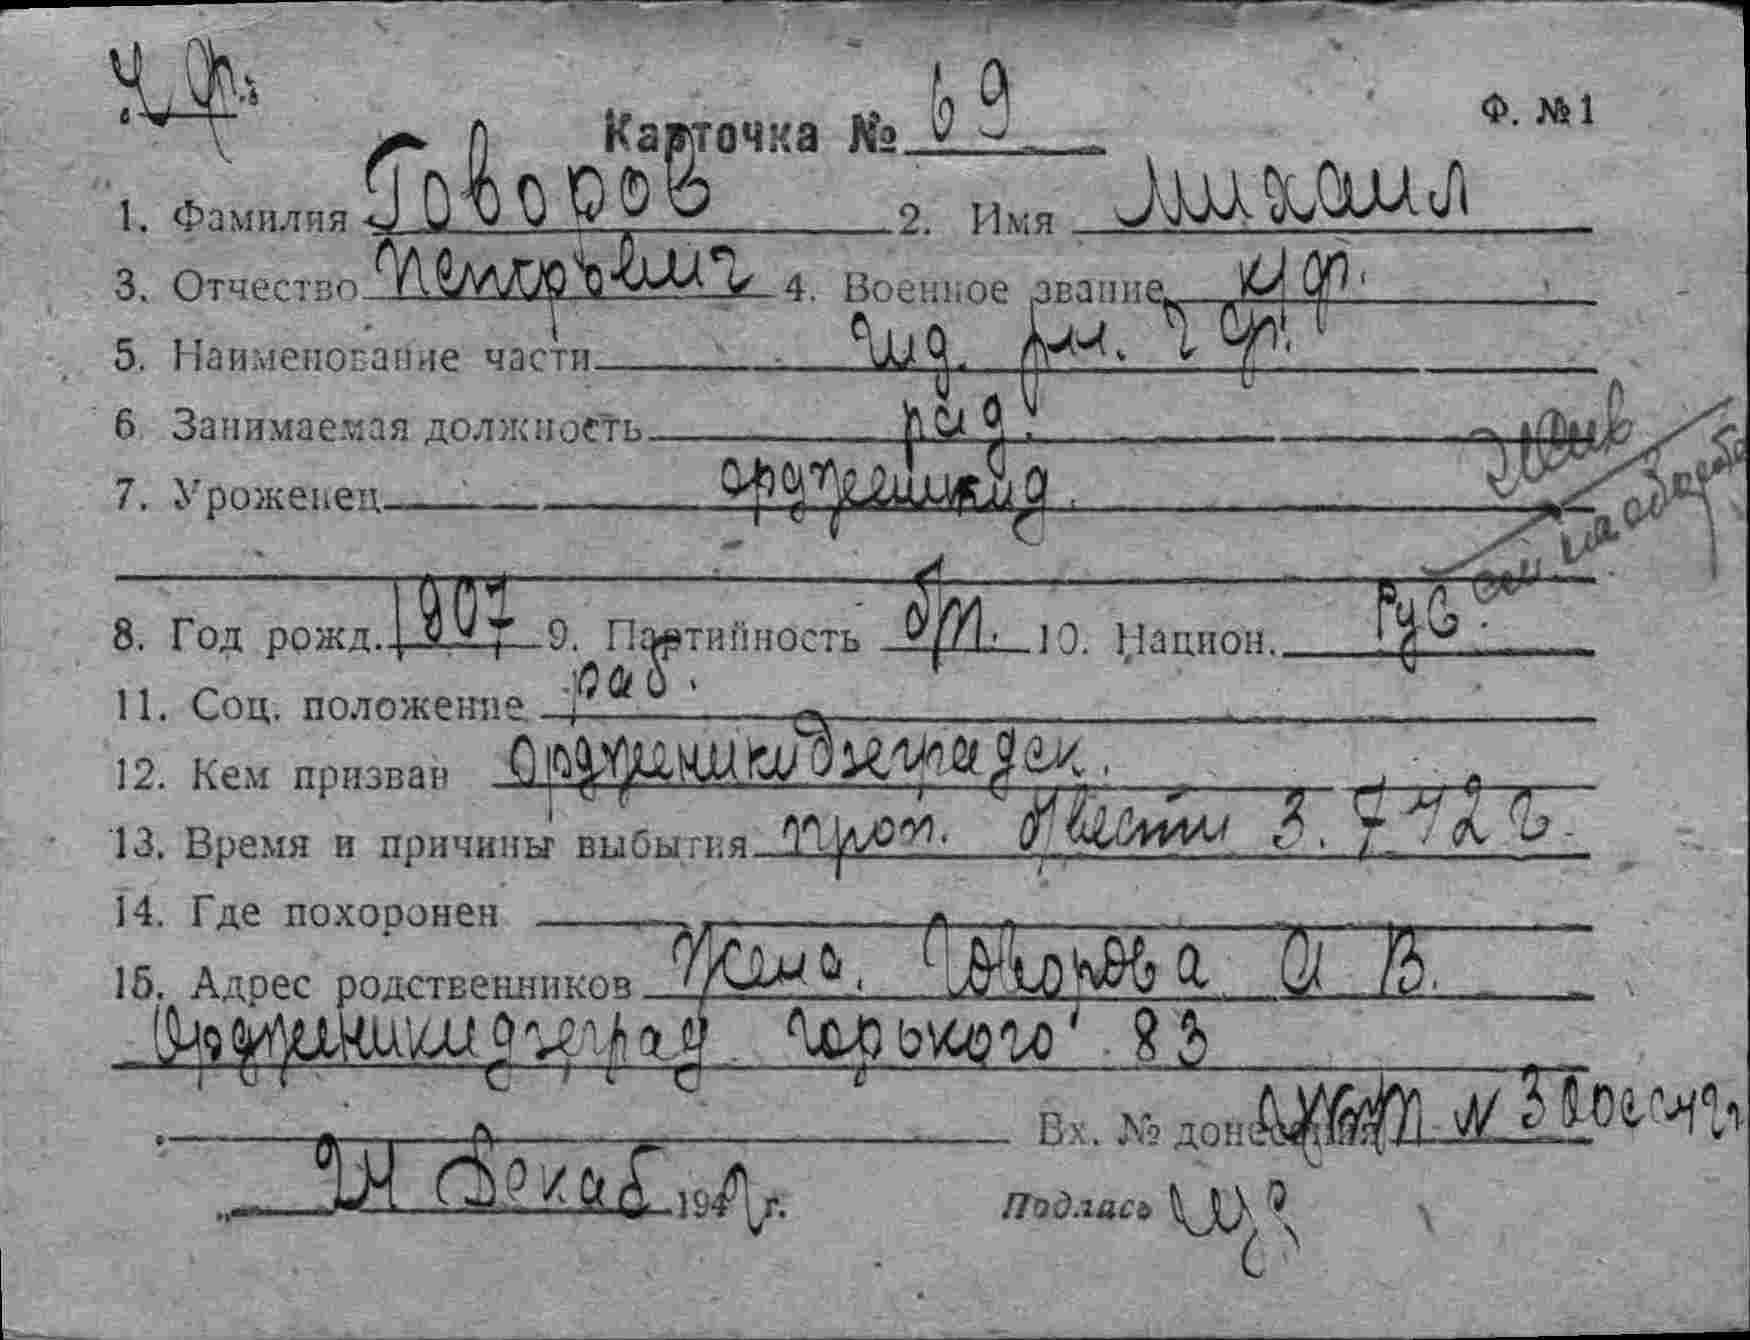 Ч ф.
Ф. №1
Карточка № 69
1. Фамилия Говоров 2. Имя Михаил
3. Отчество Петрович 4. Военное звание к/ф.
5. Наименование части
6. Занимаемая должность ряд.
7. Уроженец орджоникид.
Жив
см на обороте
8. Год рожд. 1907 9. Партийность б/п. 10. Национ. Рус.
11. Соц. положение раб.
12. Кем призван Орджоникидзеградск.
13. Время и причины выбытия проп. б/вести 3.7 42 г.
14. Где похоронен
15. Адрес родственников Жена. Говорова А В.
Орджоникидзеград Горького 83
Вх. № донесения N 3
24 Декаб 1942 г. Подпись